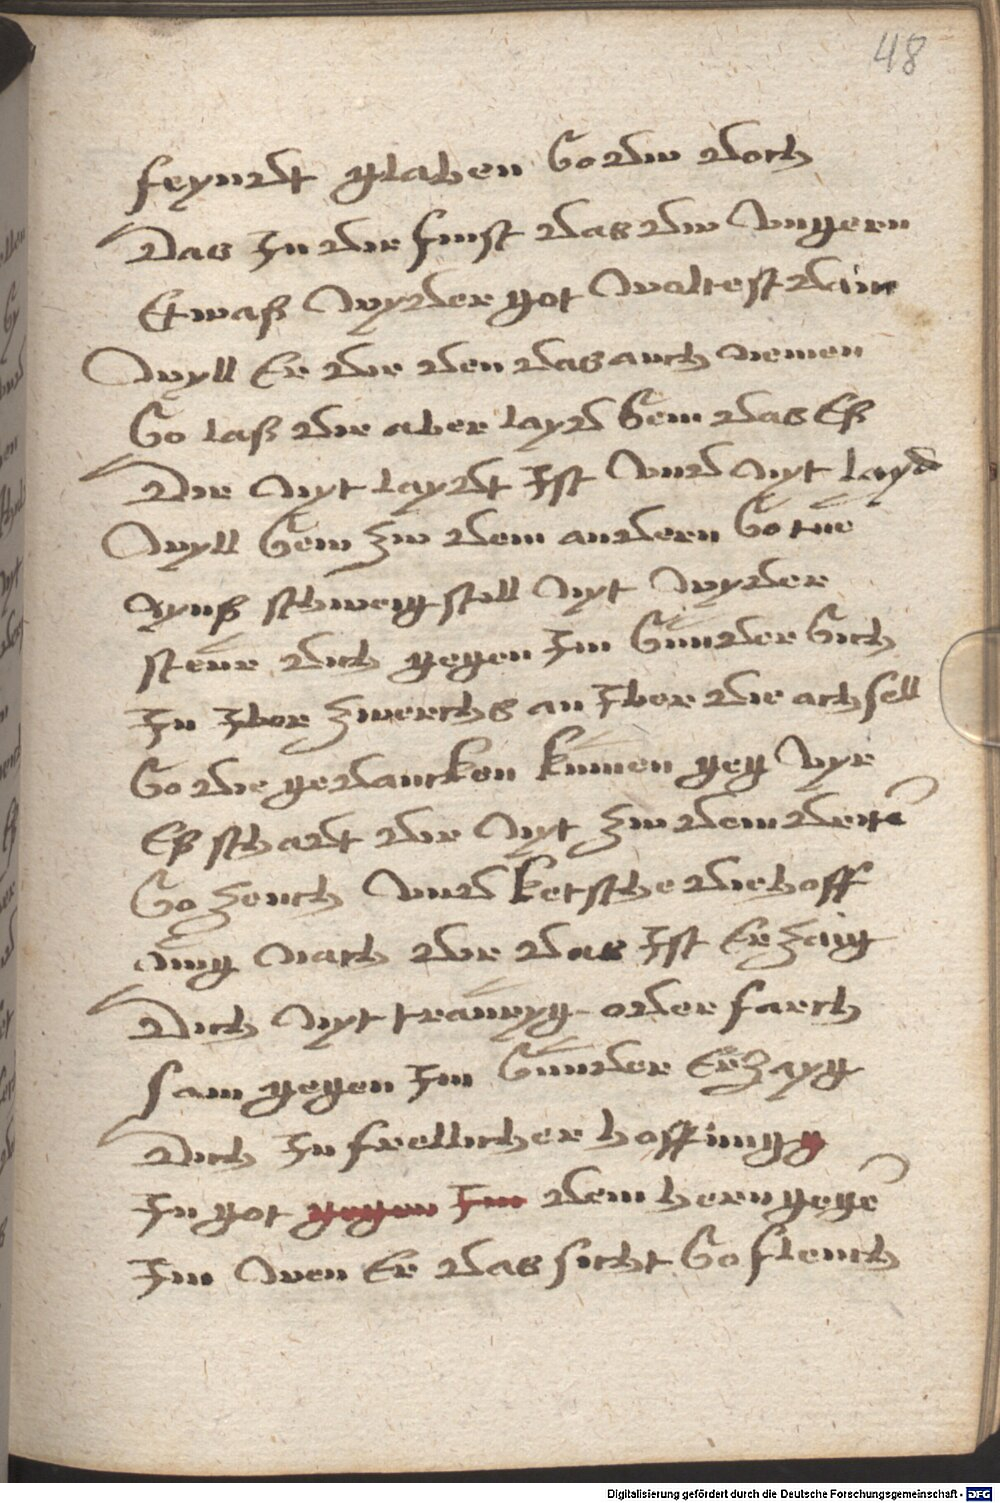 48
feyndt glaben So du doch
Das In dir finst das du Vngern
Etwaß Wyder got Woltest dain
Wyll Er dir den das auch nemen
So laß dir aber layd Sein das Eß
Dir Nyt laydt Ist Vnd Nyt layd
Wyll Sein Zw dem andern So tue
Aynß schweig still Nyt Wyder
steur dich gegen Im Sunder Sich
In Iber Zwerchs an Iber die achsell
So die gedancken kumen geg Vyr
Eß schadt dir Nyt Zw dem drite
So Zeuch Vnd ketsche die hoff
nung Nach dir das Ist Er Zaig
Dich Nyt trauryg oder forch
sam gegen Im Sunder ErZayg
Dich In frelicher hoffnung
In got gegen Im dem hern gege
Im Wen Er das sicht So fleuch
Digitalisierung gefördert durch die Deutsche Forschungsgemeinschaft - DFG